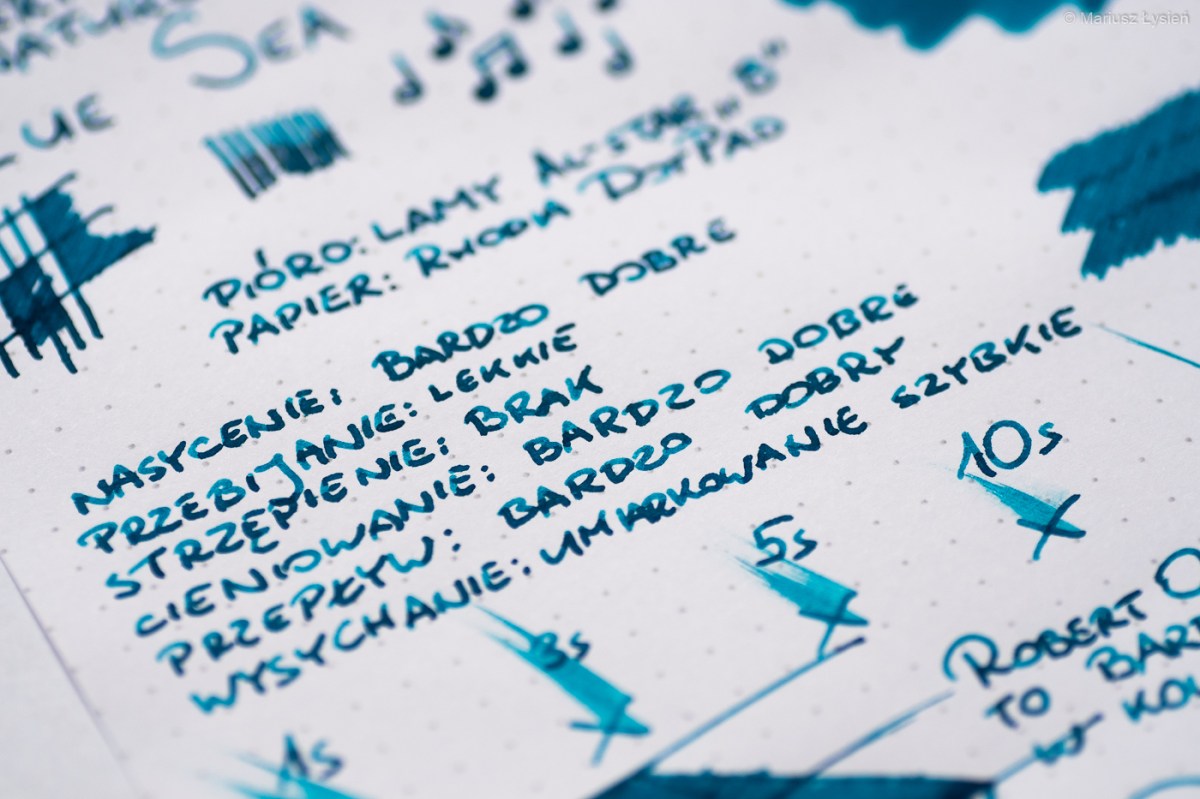 © Mariusz Łysień
SEA
PIÓRO: LAMY AL-STAR „B"
PAPIER: RHODIA DOTPAD
NASYCENIE: BARDZO DOBRE
PRZEBIJANIE: LEKKIE
STRZĘPIENIE: BRAK
CIENIOWANIE: BARDZO DOBRE
PRZEPŁYW: BARDZO DOBRY
WYSYCHANIE: UMIARKOWANIE SZYBKIE
1s
3s
5s
10s
ROBERT
TO
W